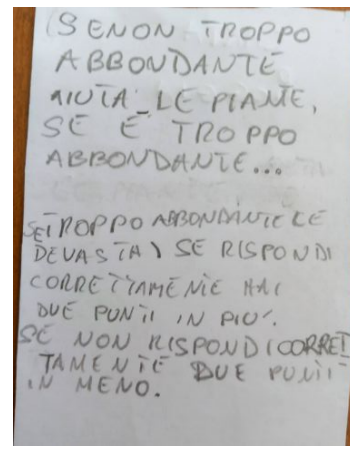 (SE NON TROPPO
ABBONDANTE
AIUTA LE PIANTE,
SE È TROPPO
ABBONDANTE...
SE TROPPO ABBONDANTE LE
DEVASTA) SE RISPONDI
CORRETTAMENTE HAI
DUE PUNTI IN PIÙ.
SE NON RISPONDI CORRET
TAMENTE DUE PUNTI
IN MENO.